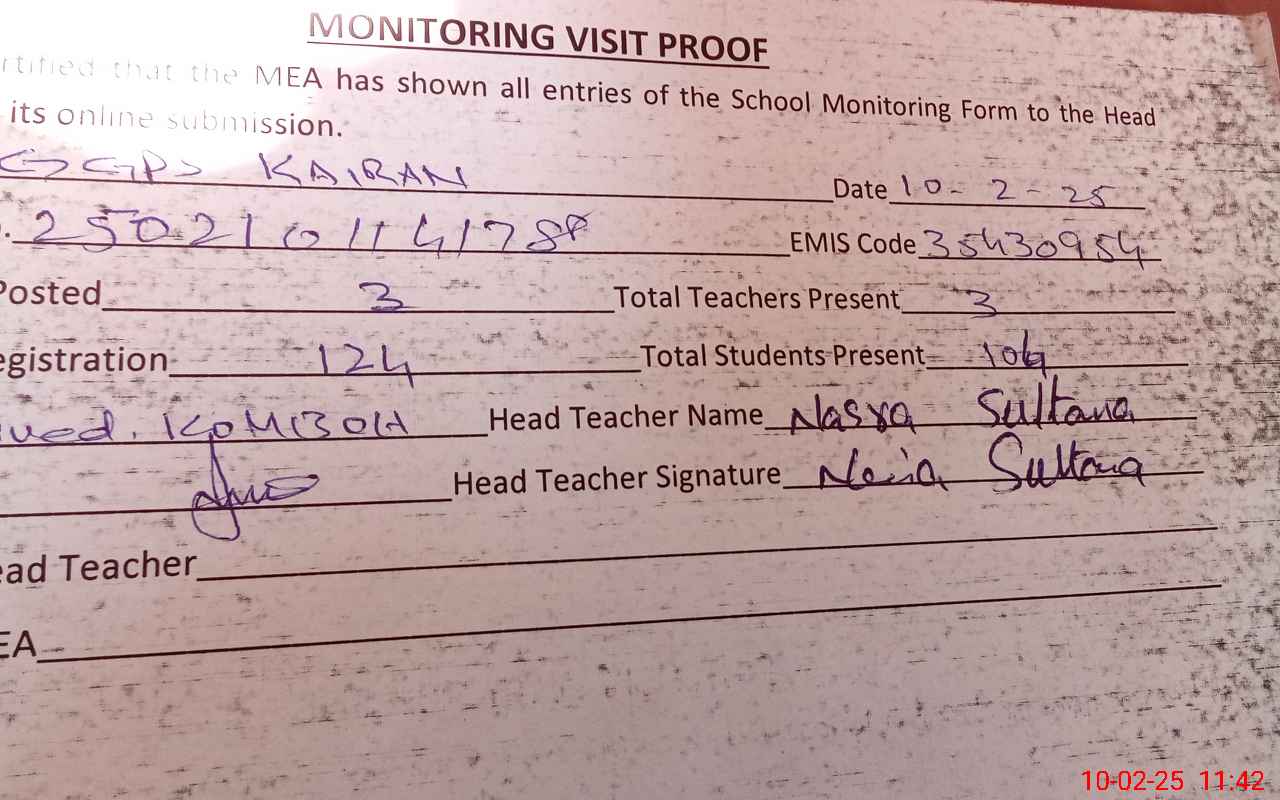 MONITORING VISIT PROOF
rtified that the MEA has shown all entries of the School Monitoring Form to the Head
its online submission.
GGPS KAIRAN Date 10-2-25
. EMIS Code 35430954
Posted 3 Total Teachers Present 3
egistration 124 Total Students Present 104
ued. KOMBOH Head Teacher Name Nasra Sultana
Head Teacher Signature Sultana
ead Teacher
EA
10-02-25 11:42